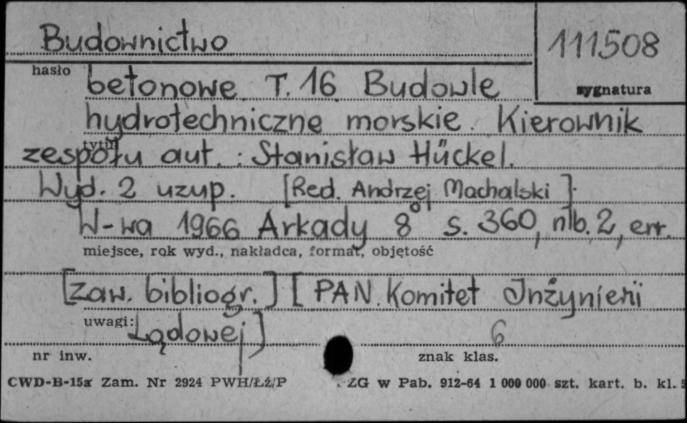 Budownictwo
111508
hasło
sygnatura
betonowe. T. 16. Budowle
hydrotechniczne morskie. Kierownik
tytuł
zespołu aut.: Stanisław Hückel.
Wyd. 2 uzup. [Red. Andrzej Machalski].
W-wa 1966 Arkady 8° s. 360, nlb. 2, err.
miejsce, rok wyd., nakładca, format, objętość
[zaw. bibliogr.] [PAN. Komitet Inżynierii
uwagi:
Lądowej]
6
nr inw.
znak klas.
CWD-B-15a Zam. Nr 2924 PWH/Łź/P
ZG w Pab. 912-64 1 000 000 szt. kart. b. kl. 5